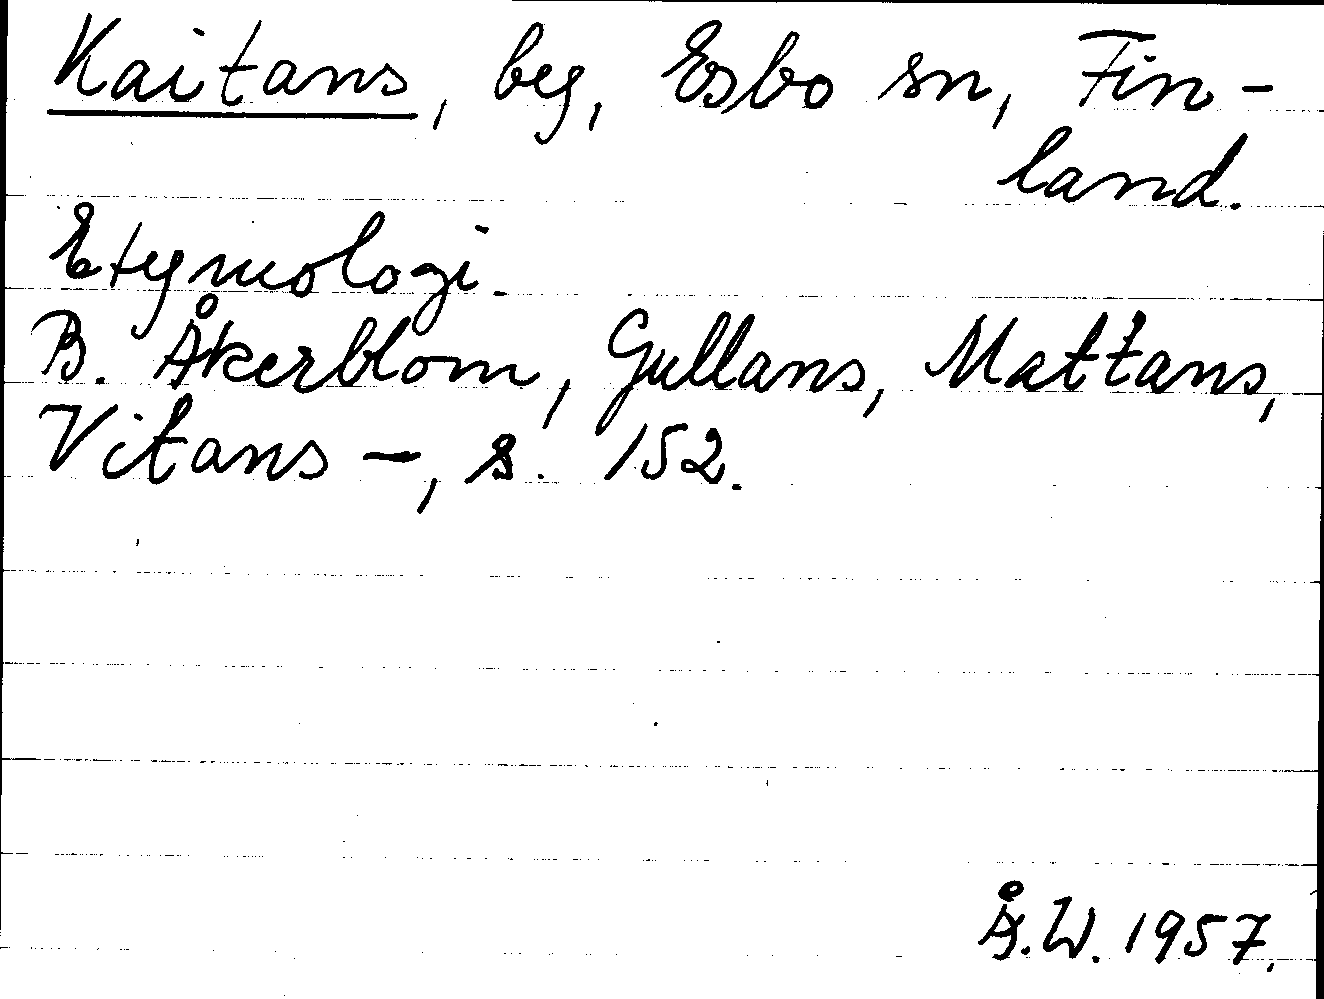 Kaitans, beg, Esbo sn, Fin-
land.
Etymologi.
B. Åkerblom, Gullans, Mattans,
Vitans -, s. 152.
Å.W. 1957.